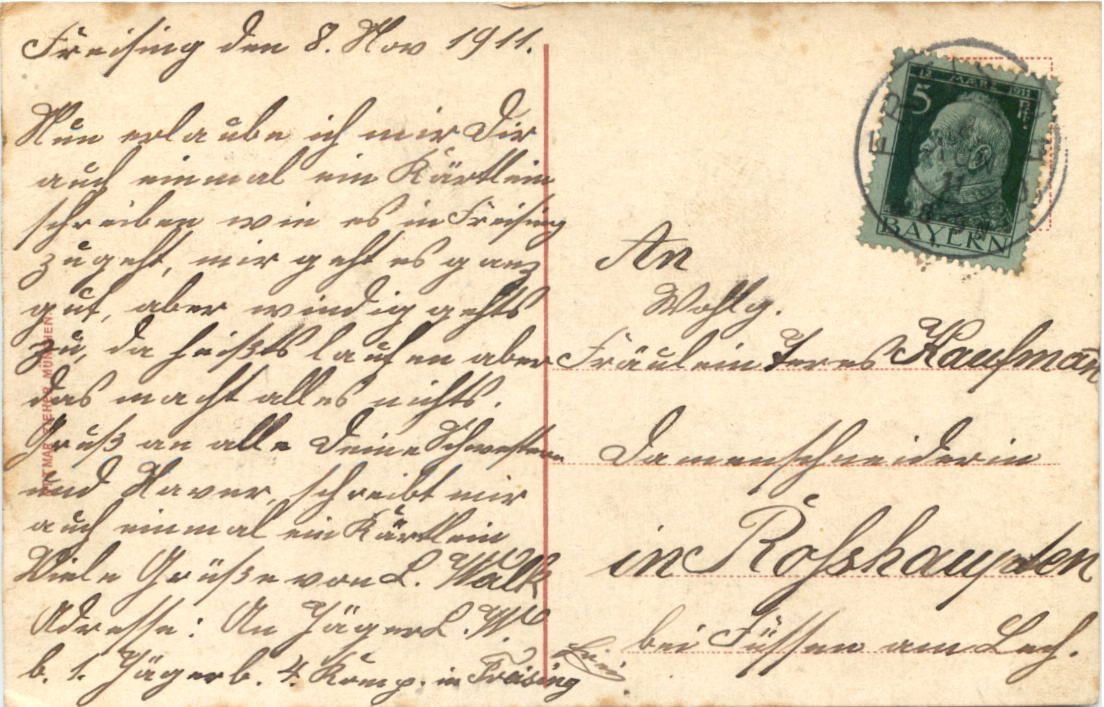 Freising den 8. Nov 1911.
Nun erlaube ich mir Dir
auch einmal ein Kärtlein
schreiben wie es in Freising
zugeht, mir geht es ganz
gut, aber windig gehts
zu, da heißts laufen aber
das macht alles nichts.
Gruß an alle Deine Schwestern
und Xaver, schreibt mir
auch einmal ein Kärtlein
Viele Grüße von L. Walk
Adresse: An Jäger L. W.
b. 1. Jägerb. 4. Komp. in Freising
An
Wohlg.
Fräulein Teres Kaufman̄
Damenschneiderin
in Rosshaupten
bei Füssen am Lech.
12. MÄRZ 1911
5 PF
BAYERN